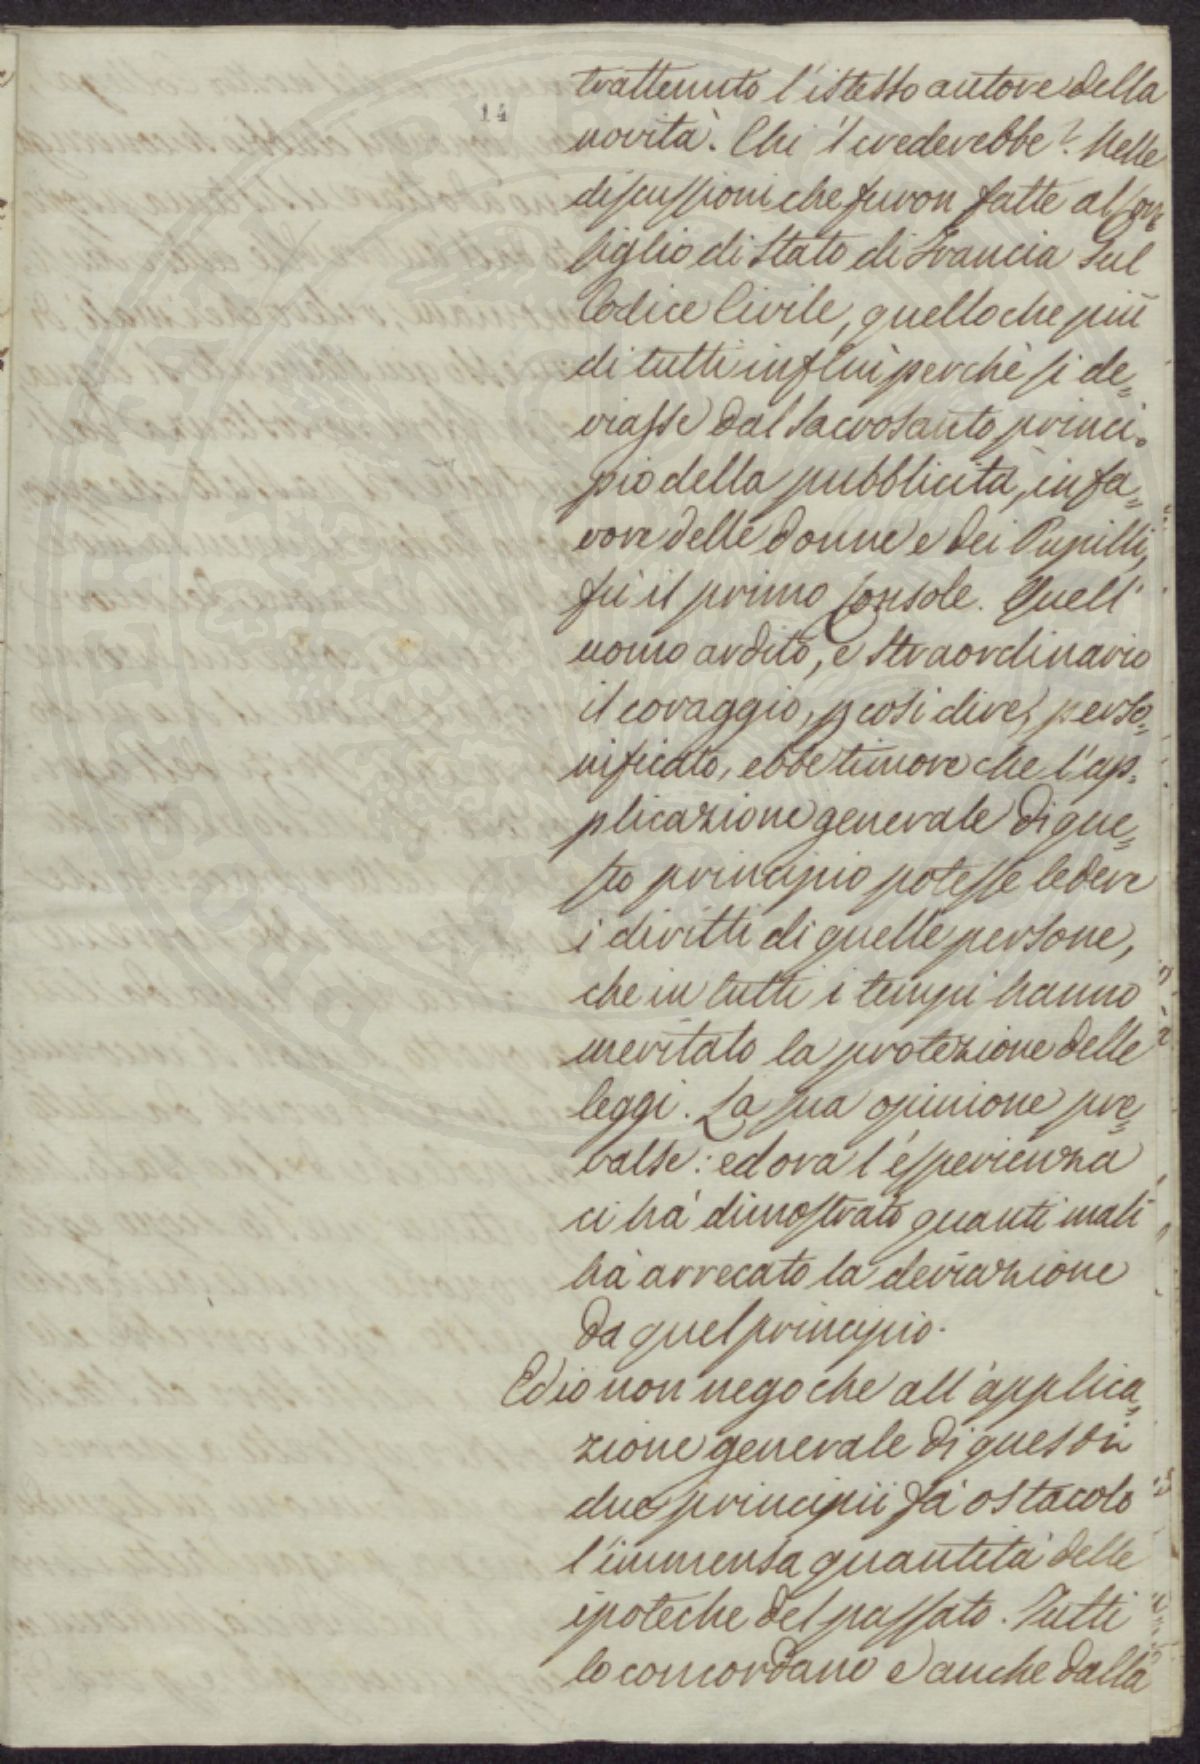 14
trattenuto l'istesso autore della
novità. Chi 'l crederebbe? Nelle
discussioni che furon fatte al Con=
siglio di Stato di Francia sul
Codice Civile, quello che più
di tutti influì perchè si de=
viasse dal sacrosanto princi=
pio della pubblicità, in fa=
vore delle donne e dei Pupilli,
fù il primo Console. Quell'
uomo ardito, e straordinario
il coraggio, p così dire, perso=
nificato, ebbe timore che l'ap=
plicazione generale di que=
sto principio potesse ledere
i diritti di quelle persone,
che in tutti i tempi hanno
meritato la protezione delle
leggi. La sua opinione pre=
valse: ed ora l'esperienza
ci hà dimostrato quanti mali
hà arrecato la deviazione
da quel principio.
Ed io non nego che all'applica=
zione generale di questi
due principii fà ostacolo
l'immensa quantità delle
ipoteche del passato. Tutti
lo concordano e anche dalla